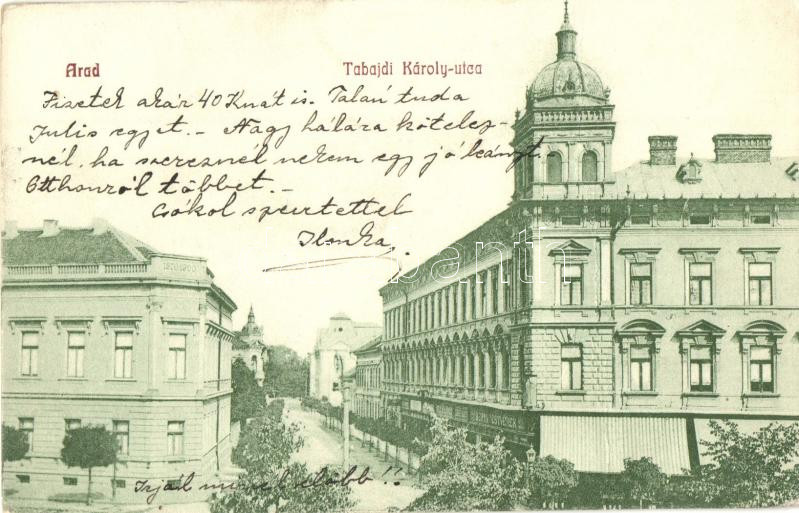 Arad
Tabajdi Károly-utca
Fizetek akár 40 Knát is. Talán tuda
Julis egyet. — Nagy hálára kötelez-
nél, ha szereznél nekem egy jó leányt.
Otthonról többet. —
Csókol szeretettel
Ilonka.
Irjál minél előbb!!